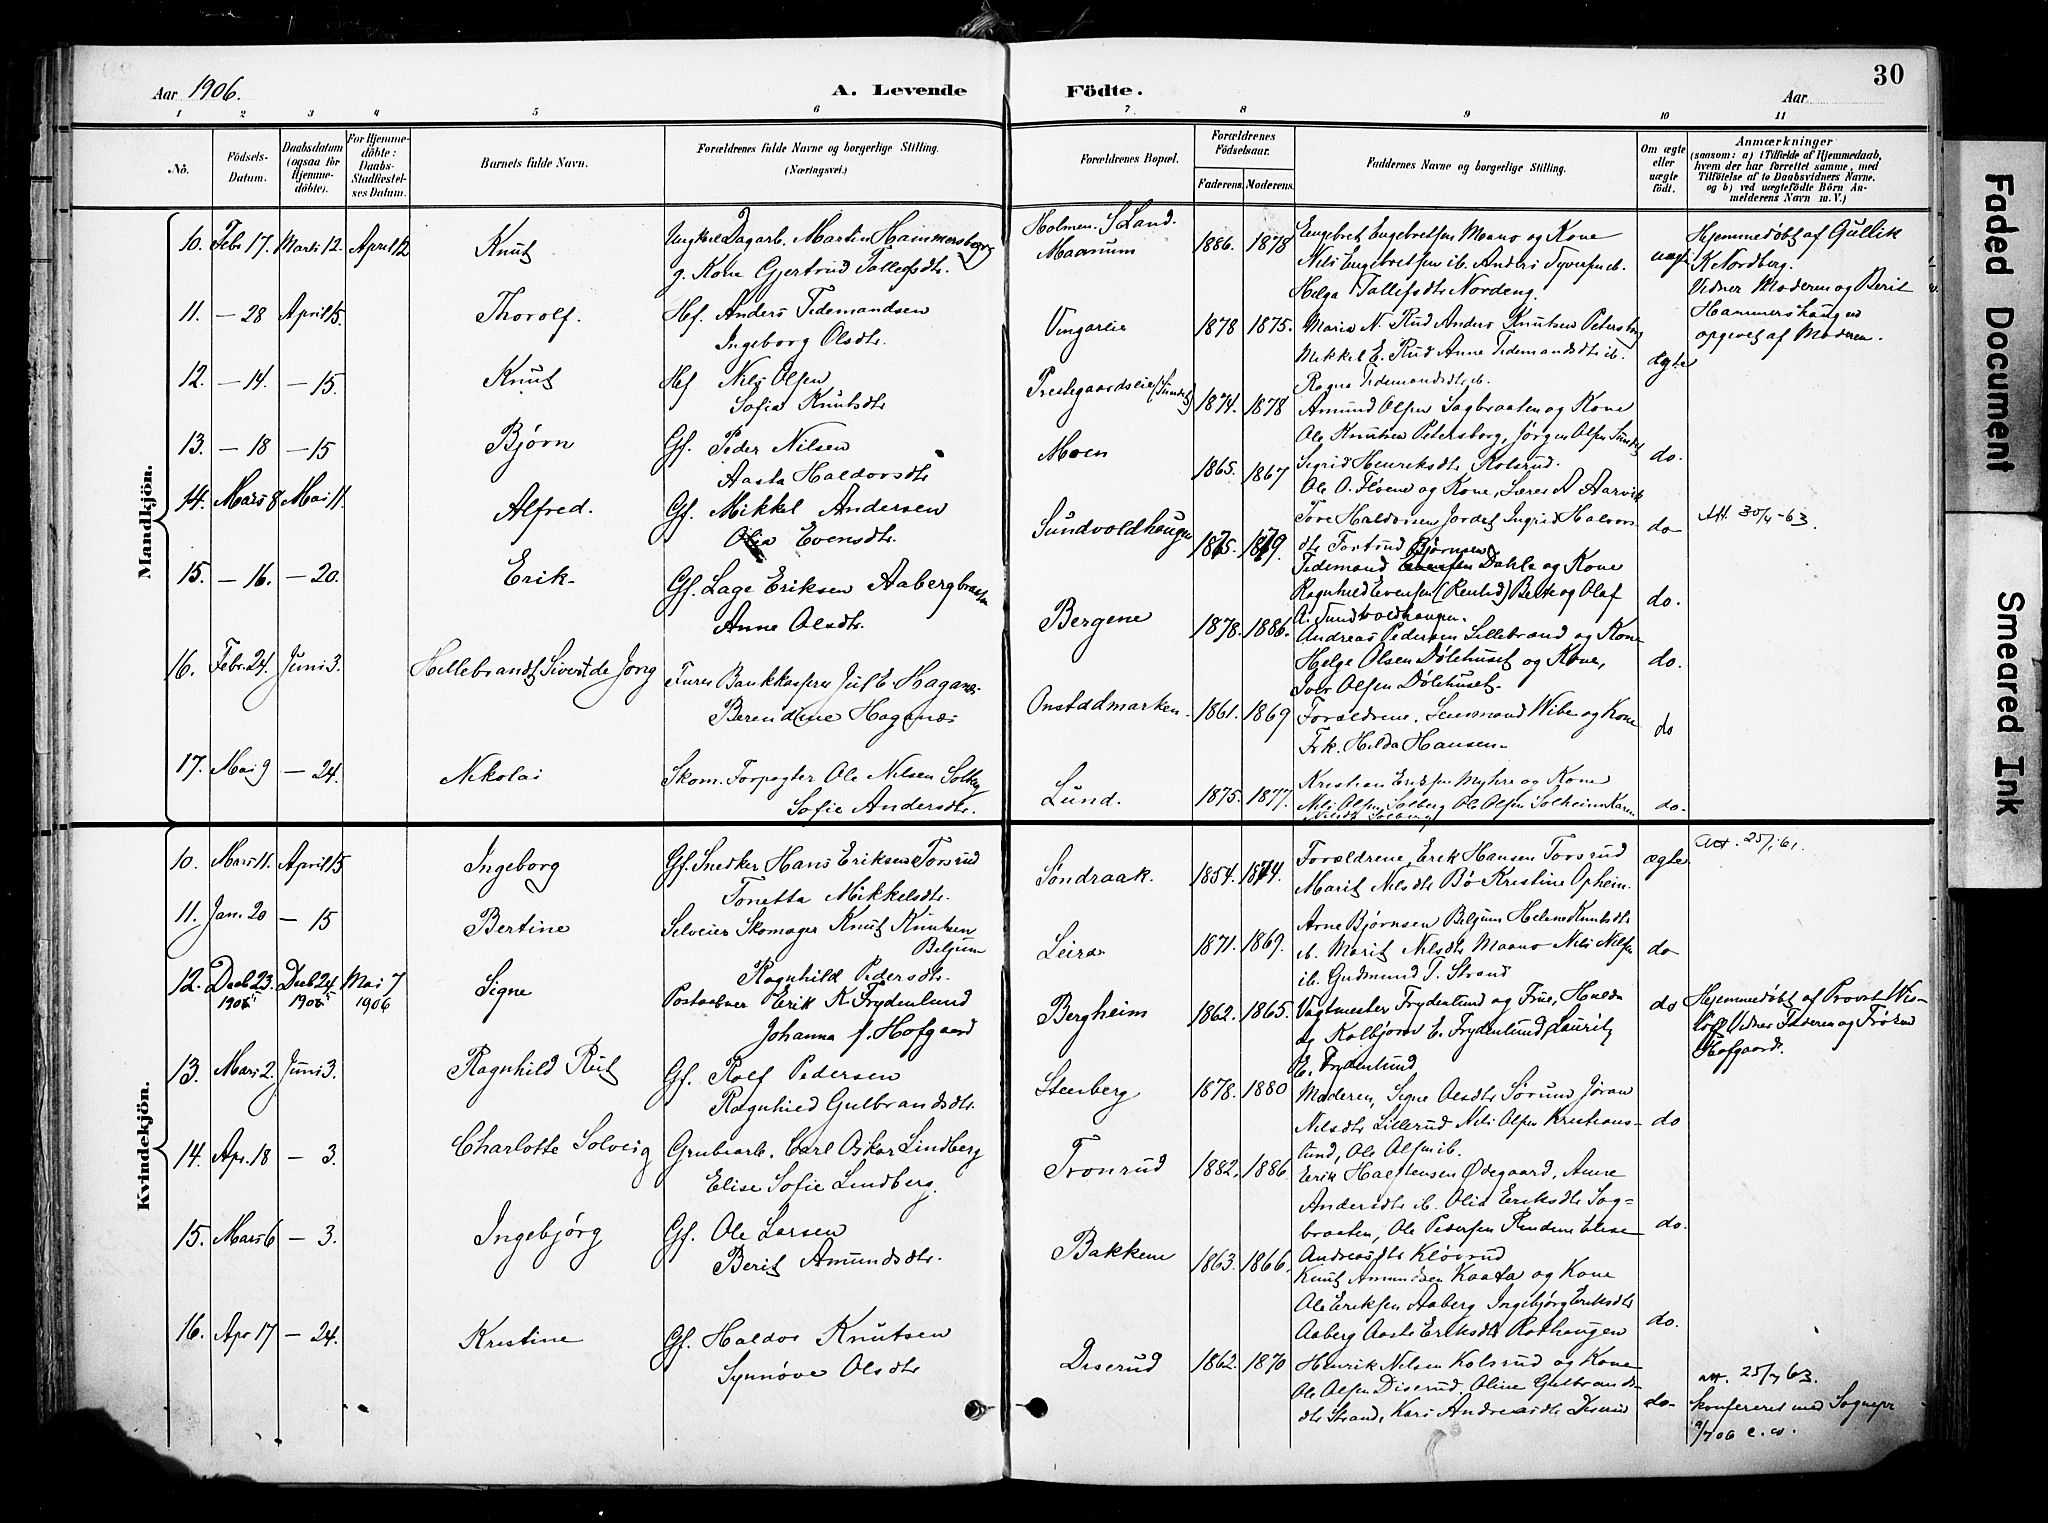 30
Aar 1906.
A. Levende Födte.
Aar
1 2 3 4 5 6 7 8 9 10 11
No.
Födsels-Datum.
Daabsdatum (ogsaa for Hjemmedöbte).
For Hjemmedöbte: Daabs Stadfæstelses Datum.
Barnets fulde Navn.
Forældrenes fulde Navne og borgerlige Stilling.
(Næringsvei.)
Forældrenes Bopæl.
Forældrenes Födselsaar.
Faderens. Moderens.
Faddernes Navne og borgerlige Stilling.
Om ægte eller uægte født.
Anmærkninger
(saasom: a) i Tilfælde af Hjemmedaab, hvem der har forrettet samme, med Tilföielse af to Daabsvidners Navne. og b) ved uægtefödte Börn Anmelderens Navn m. V.)
Mandkjön.
10. Febr 17. Marts 12. April 12 Knut Ungkarl Dagarb. Martin Hammersberg
g. Kone Gjertrud Tollefsdtr.
Holmen. S Land.
Maanum 1886. 1878 Engebret Engebretsen Mano og Kone
Nils Engebretsen ib. Anders Syversen ib.
Helga Tollefsdtr Nordeng.
uægte Hjemmedøbt af Gullik
K Nordberg.
Vidner Moderen og Berit
Hammershaugen
opgivet af Moderen.
11. — 28 April 15. Thorolf. Hf. Anders Tidemandsen
Ingeborg Olsdtr.
Vingareie 1878 1875. Maria N. Rud Anders Knutsen Petersborg
Mikkel E. Rud Anne Tidemandsdtr ib.
Ragna Tidemandsdtr ib.
ægte
12. — 14. — 15. Knut Hf Nils Olsen
Sofia Knutsdtr
Prestegaardseie (Sundet) 1874. 1878 Amund Olsen Sagbraaten og Kone
Ole Knutsen Petersborg, Jørgen Olsen Sundet
do.
13. — 18 — 15 Bjørn Gf. Peder Nilsen
Aasta Haldorsdtr
Moen 1865. 1867 Sigrid Henriksdtr Kolsrud.
Ole O. Fløvene og Kone, Lærer A Aarvik
14. Mars 8 Mai 11. Alfred. Gf. Mikkel Andersen
Olia Evensdtr.
Sundvoldhaugen 1875. 1879. Tore Haldorsen Jordet Ingrid Halvors
dtr Fortrud Bjørnsen
Tidemand Dahle og Kone
Ragnhild Evensen
do Att. 30/4-63.
15. — 16. — 20. Erik Gf. Lage Eriksen Aabergbraaten
Anne Olsdtr.
Bergene 1878. 1886. A. Sundvoldhaugen.
Andreas Pedersen Lillebrand og Kone
Helge Olsen Dølehuset og Kone,
Iver Olsen Dølehuset.
do.
16. Febr. 24. Juni 3. Hillebrandt Sivert de Jong Bankkasserer Jul E. Haganæs
Berendine Haganæs
Onstadmarken. 1861. 1869 Forældrene, Lensmand Wibe og Kone
Frk. Hilda Hansen.
do
17. Mai 9 — 24. Nikolai Skom. Forpagter Ole Nilsen Solberg
Sofie Andersdtr.
Lund. 1875. 1877. Kristian Eriksen Myhre og Kone
Nils Olsen Solberg Ole Olsen Solheim Karen
Nilsdtr Solberg
do.
Kvindekjön.
10. Mars 11. April 15 Ingeborg Gf. Snedker Hans Eriksen Torsrud
Tonetta Mikkelsdtr.
Søndraak. 1854. 1874. Forældrene, Erik Hansen Torsrud
Marit Nilsdtr Bø Kristine Opheim.
ægte Att. 25/1 61.
11. Jan. 20 — 15 Bertine Selveier Skomager Knut Knutsen
Belgum
Ragnhild Pedersdtr.
Leira 1871. 1869. Arne Bjørnsen Belgum Helene Knutsdtr
ib. Marit Nilsdtr Maano Nils Nilsen
ib. Gudmund T. Strand
do
12. Decb 23. 1905 Decb 24 1905 Mai 7 1906 Signe Postaabner Erik K Frydenlund
Johanna f. Hofgaard
Bergheim 1862. 1865. Vagtmester Frydenlund og Frue, Hulda
og Kolbjørn E. Frydenlund Lauritz
E. Frydenlund
do Hjemmedøbt af Provst Wisløff
Vidner Faderen og Frøken
Hofgaard.
13. Mars 2. Juni 3. Ragnhild Rut Gf. Rolf Pedersen
Ragnhild Gulbrandsdtr.
Steinberg 1878. 1880 Moderen, Signe Olsdtr Sørum Jøran
Nilsdtr Lillerud Nils Olsen Kristians-
lund, Ole Olsen ib.
do
14. Apr. 18 — 3. Charlotte Solveig Grubearb. Carl Oskar Lindberg
Elise Sofie Lindberg.
Tronrud 1882. 1886 Erik Halstensen Ødegaard, Anne
Andersdtr ib. Olia Eriksdtr Sag-
braaten, Ole Pedersen Rindem Elise
Andreasdtr Kløvrud
do.
15. Mars 6 — 3. Ingebjørg Gf. Ole Larsen
Berit Amundsdtr.
Bakkene 1863. 1866. Knut Amundsen Kaata og Kone
Ole Eriksen Aaberg Ingebjørg Eriksdtr
Aaberg Aaste Eriksdtr Rothaugen
do.
16. Apr 17 — 24. Kristine Gf. Haldor Knutsen
Synnøve Olsdtr
Diserud 1862. 1870 Henrik Nilsen Kolsrud og Kone
Ole Olsen Diserud, Oline Gulbrands-
dtr Strand, Kari Andreasdtr Diserud
do. att. 25/4 63.
konfereret med Sognepr
9/7 06 C. W.
Faded Document
Smeared Ink